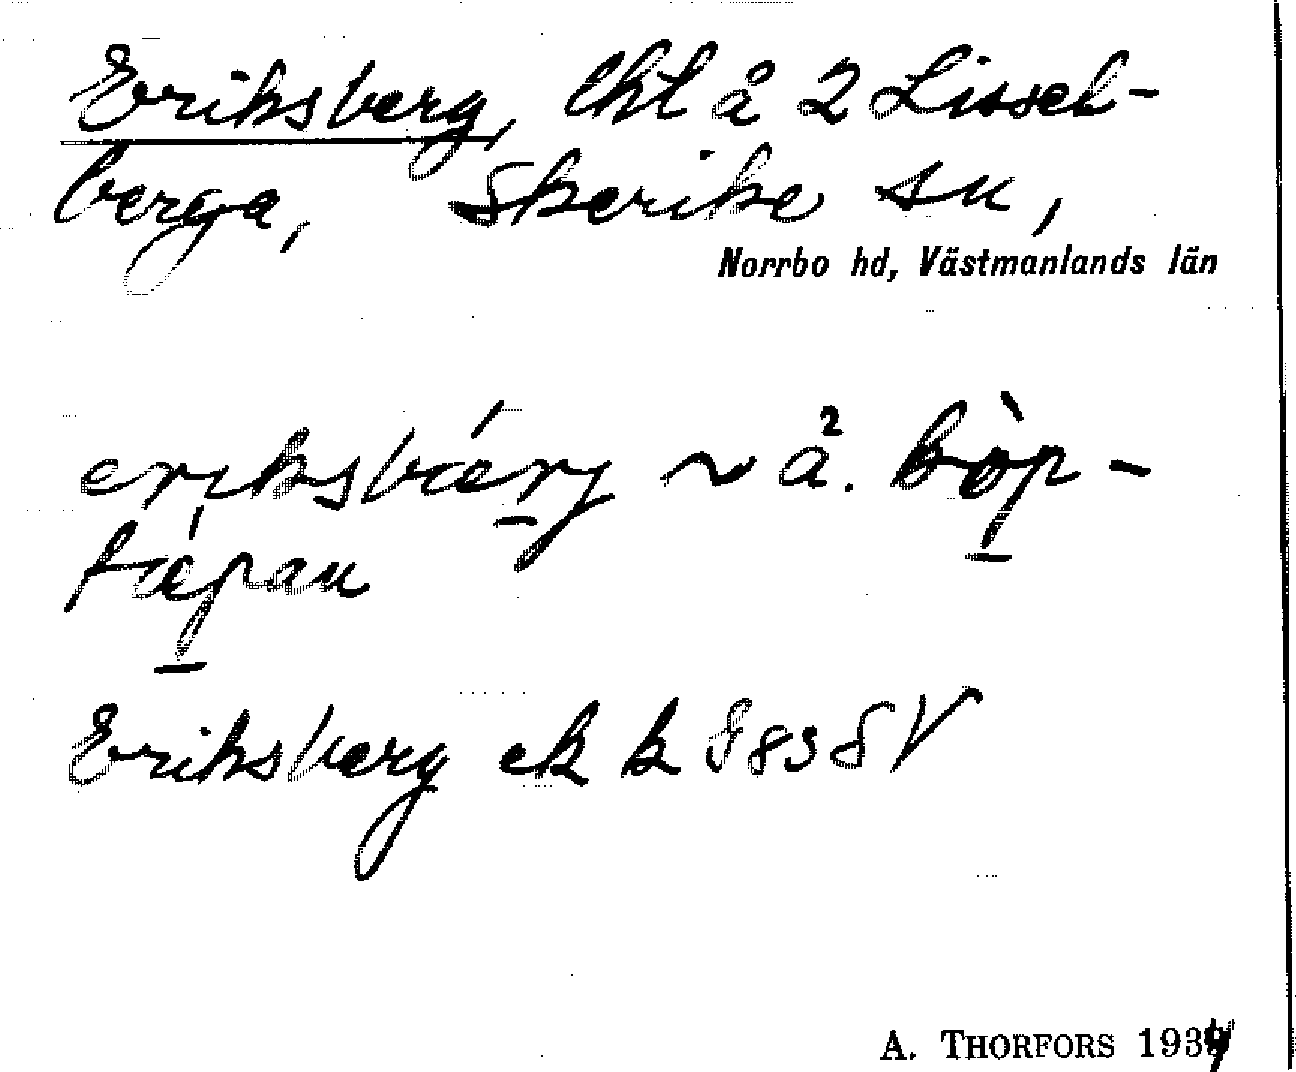 Eriksberg, lht å 2 Lissel-
berga, Skerike sn,
Norrbo hd, Västmanlands län
eriksbærj ~ å. kòp-
tæpan
Eriksberg ek k 983 SV
A. THORFORS 1934